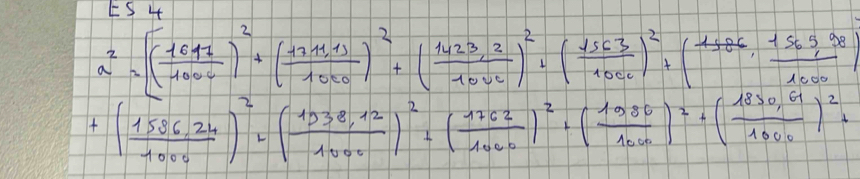 ES 4
a² = [(1617/1000)² + (1711,13/1000)² + (1423,2/1000)² + (1563/1000)² + (1569,98/1000)
+ (1586,24/1000)² + (1938,12/1000)² + (1762/1000)² + (1986/1000)² + (1830,61/1000)² +